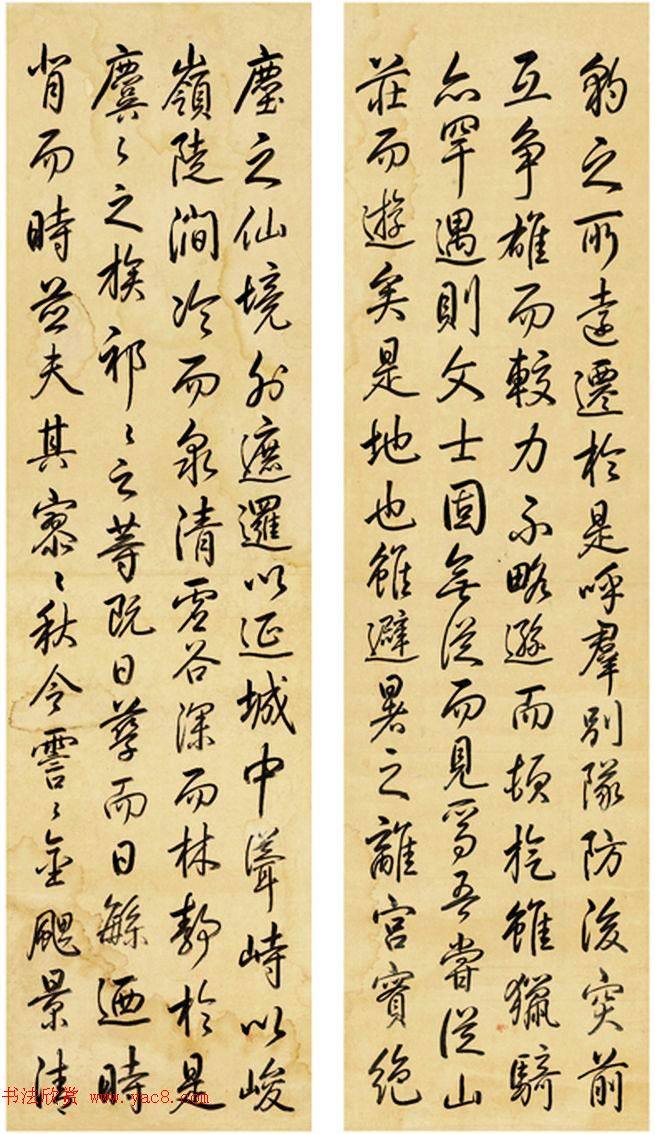 豹之所遠遷於是呼羣別隊防後突前
互争雄而較力不略遜而頓雖獵騎
亦罕遇則文士固無從而見焉吾嘗從山
莊而遊矣是地也雖避暑之離宮實絶
塵之仙境外遮邐以延城中聳峙以峻
嶺陡澗冷而泉清谷深而林静於是
麌〻之族祁〻之等既日孳而日繇迺時
而時夫其寥〻秋令霅〻金飈景清
书法欣赏 www.yac8.com